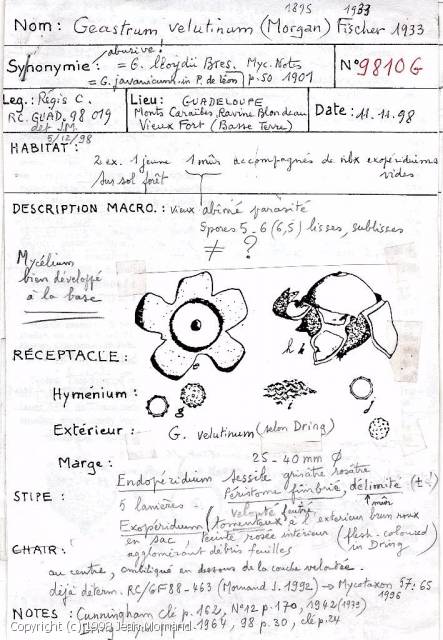 1895 1933
Nom: Geastrum velutinum (Morgan) Fischer 1933
abusive!
Synonymie: = G. lloydii Bres. Myc. Notes
= G. javanicum in P. de léon p.50 1901
N° 9810G
Leg.: Régis C.
RC. GUAD. 98 019
det JM.
5/12/98
Lieu: GUADELOUPE
Monts Caraïbes, Ravine Blondeau
Vieux Fort (Basse Terre)
Date: 11.11.98
HABITAT:
2 ex. 1 jeune 1 mûr accompagnés de nbx exopéridiums
sur sol forêt vides
DESCRIPTION MACRO.: vieux abimé parasité
Spores 5-6 (6,5) lisses, sublisses
≠ ?
Mycélium
bien développé
à la base
RÉCEPTACLE:
h
Hyménium:
g i
Extérieur: G. velutinum (selon Dring)
Marge: 25-40 mm Ø
Endopéridium sessile grisâtre rosâtre
STIPE: Péristome fimbrié, délimité (±)
5 lanières. velouté feutré mûr
Exopéridium (tomenteux à l'extérieur brun roux
en sac, teinte rosée intérieur (flesh-coloured
CHAIR: agglomérant débris feuilles in Dring)
au centre, ombiliqué en dessous de la couche veloutée.
déjà déterm. RC/GF88-463 (Mornand J. 1992) → Mycotaxon 57:65
1996
NOTES: Cunningham clé p.162, N°12 p.170, 1942 (1979)
1964, 98 p.30, clé p.24
Copyright (c) 1998 Jean Mornand